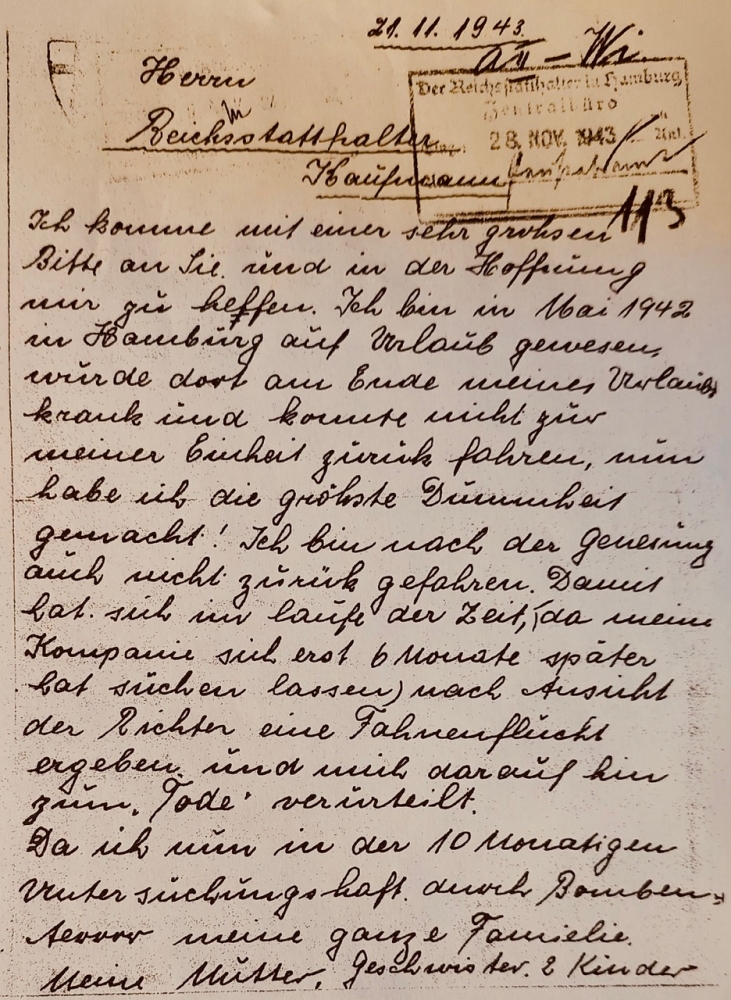 21.11.1943.
Herrn
Der Reichsstatthalter in Hamburg
Zentralbüro
Reichsstatthalter
28. NOV. 1943
Kaufmann
113
Ich komme mit einer sehr grohsen
Bitte an Sie. und in der Hoffnung
mir zu helfen. Ich bin in Mai 1942
in Hamburg auf Urlaub gewesen,
wurde dort am Ende meines Urlaubs
krank und konnte nicht zur
meiner Einheit zurük fahren, nun
habe ich die gröhste Dummheit
gemacht! Ich bin nach der Genesung
auch nicht zurük gefahren. Damit
hat sich im laufe der Zeit, (da meine
Kompanie sich erst 6 Monate später
hat suchen lassen) nach Ansicht
der Richter eine Fahnenflucht
ergeben. und mich darauf hin
zum "Tode" verurteilt.
Da ich nun in der 10 Monatigen
Untersuchungshaft. durch Bomben-
terror meine ganze Famielie.
Meine Mutter, Geschwister. 2 Kinder